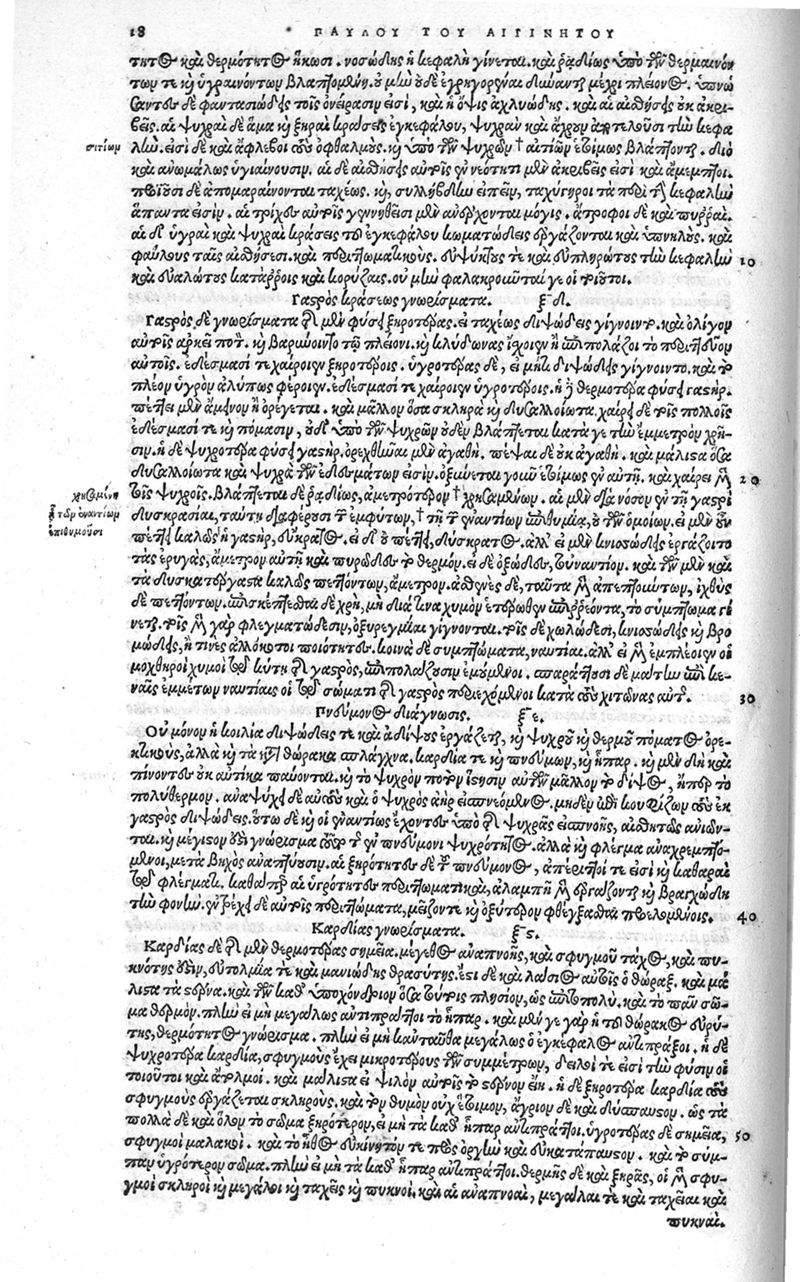 18 ΠΑΥΛΟΥ ΤΟΥ ΑΙΓΙΝΗΤΟΥ
τητος καὶ θερμότητος ἥκωσι. νοσώδης ἡ κεφαλὴ γίνεται. καὶ ῥαδίως ὑπὸ τῶν θερμαινόν
των τε καὶ ὑγραινόντων βλαπτομένη. οὐ μὴν οὐδὲ ἐγρηγορέναι δύνανται μέχρι πλείονος. ὑπνώ
σαντες δὲ φαντασιώδεις τοῖς ὀνείρασιν εἰσὶ, καὶ ἡ ὄψις ἀχλυώδης. καὶ αἱ αἰσθήσεις οὐκ ἀκρι-
βεῖς. αἱ ψυχραὶ δὲ ἅμα καὶ ξηραὶ κράσεις ἐγκεφάλου, ψυχρὰν καὶ ἄχρουν ἀποτελοῦσι τὴν κεφα
σιτίωμ
λήν. εἰσὶ δὲ καὶ ἄφλεβοι τοὺς ὀφθαλμοὺς. καὶ ὑπὸ τῶν ψυχρῶν † αἰτιῶν ἑτοίμως βλάπτονται. διὸ
καὶ ἀνωμάλως ὑγιαίνουσιν. αἱ δὲ αἰσθήσεις αὐτοῖς ἐν νεότητι μὲν ἀκριβεῖς εἰσὶ καὶ ἄμεμπτοι.
προϊοῦσι δὲ ἀπομαραίνονται ταχέως. καὶ, συλλήβδην εἰπεῖν, ταχύγηροι τὰ περὶ τὴν κεφαλὴν
ἅπαντα εἰσίν. αἱ τρίχες αὐτοῖς γεννηθεῖσι μὲν ἀνέρχονται μόγις. ἄτροφοι δὲ καὶ πυρραί.
αἱ δ' ὑγραὶ καὶ ψυχραὶ κράσεις τοῦ ἐγκεφάλου κωματώδεις ἐργάζονται καὶ ὑπνηλούς. καὶ
φαύλους ταῖς αἰσθήσεσι. καὶ περιττωματικούς. εὐψύκτους τε καὶ εὐπληρώτους τὴν κεφαλὴν 10
καὶ εὐαλώτους κατάρροις καὶ κορύζαις. οὐ μὴν φαλακροῦνταί γε οἱ τοιοῦτοι.
Γαστρὸς κράσεως γνωρίσματα. ξδ.
Γαστρὸς δὲ γνωρίσματα τῆς μὲν φύσει ξηροτέρας. εἰ ταχέως διψώδεις γίγνοιντο. καὶ ὀλίγον
αὐτοῖς ἀρκεῖ ποτόν. καὶ βαρύνοιντο τῷ πλείονι. καὶ κλύδωνας ἴσχοιεν ἢ ἐπιπολάζοι τὸ περιττεῦον
αὐτοῖς. ἐδέσμασί τε χαίροιεν ξηροτέροις. ὑγροτέρας δὲ, εἰ μήτε διψώδεις γίγνοιντο. καὶ τὸ
πλέον ὑγρὸν ἀλύπως φέροιεν. ἐδέσμασί τε χαίροιεν ὑγροτέροις. ἡ δὲ θερμοτέρα φύσει γαστὴρ.
πέττει μὲν ἄμεινον ἢ ὀρέγεται. καὶ μᾶλλον ὅσα σκληρὰ καὶ δυσαλλοίωτα. χαίρει δὲ τοῖς πολλοῖς
ἐδέσμασί τε καὶ πόμασιν, οὐδ' ὑπὸ τῶν ψυχρῶν οὐδὲν βλάπτεται κατά γε τὴν ἔμμετρον χρῆ-
σιν. ἡ δὲ ψυχροτέρα φύσει γαστὴρ. ὀρεχθῆναι μὲν ἀγαθή. πέψαι δὲ οὐκ ἀγαθή. καὶ μάλιστα ὅσα
δυσαλλοίωτα καὶ ψυχρὰ τῶν ἐδεσμάτων εἰσίν. ὀξύνεται γοῦν ἑτοίμως ἐν αὐτῇ. καὶ χαίρει μὲν 20
χρηζομένη
τοῖς ψυχροῖς. βλάπτεται δὲ ῥαδίως, ἀμετρότερον † χρηζομένων. αἱ μὲν διὰ νόσον ἐν τῇ γαστρὶ
ἢ τῶν ἐναντίωμ
δυσκρασίαι, ταύτῃ διαφέρουσι τῶν ἐμφύτων, † τῇ τῶν ἐναντίων ἐπιθυμίᾳ, οὐ τῶν ὁμοίων. εἰ μὲν οὖν
ἐπιθυμοῦσι
πέττει καλῶς ἡ γαστὴρ, εὔκρατος. εἰ δ' οὐ πέττει, δύσκρατος. ἀλλ' εἰ μὲν κνισώδεις ἐργάζοιτο
τὰς ἐρυγὰς, ἄμετρον αὐτῇ καὶ πυρῶδες τὸ θερμόν. εἰ δὲ ὀξώδεις, τοὐναντίον. καὶ τῶν μὲν καὶ
τὰ δυσκατέργαστα καλῶς πεττόντων, ἄμετρον. ἀσθενὲς δὲ, ταῦτα μὲν ἀπεπτούντων, ἰχθῦς
δὲ πεττόντων. ἐπισκέπτεσθαι δὲ χρὴ, μὴ διά τινα χυμὸν ἑτέρωθεν ἐπιρρέοντα, τὸ σύμπτωμα γί
νεται. τοῖς μὲν γὰρ φλεγματώδεσιν, ὀξυρεγμίαι γίγνονται. τοῖς δὲ χολώδεσι, κνισώδεις καὶ βρο
μώδεις, ἤ τινες ἀλλόκοτοι ποιότητες. κοινὰ δὲ συμπτώματα, ναυτίαι. ἀλλ' εἰ μὲν ἐμπλέοιεν οἱ
μοχθηροὶ χυμοὶ τῷ κύτει τῆς γαστρὸς, ἐπιπολάζουσιν ἐμούμενοι. σπαράττουσι δὲ μάτην ἐπὶ κε-
ναῖς ἐμέτων ναυτίαις οἱ τῷ σώματι τῆς γαστρὸς περιεχόμενοι κατὰ τοὺς χιτῶνας αὐτῆς. 30
Πνεύμονος διάγνωσις. ξε.
Οὐ μόνον ἡ κοιλία διψώδεις τε καὶ ἀδίψους ἐργάζεται, καὶ ψυχροῦ καὶ θερμοῦ πόματος ὀρε-
κτικοὺς, ἀλλὰ καὶ τὰ κατὰ θώρακα σπλάγχνα. καρδία τε καὶ πνεύμων, καὶ ἧπαρ. καὶ μὲν δὴ καὶ
πίνοντες οὐκ αὐτίκα παύονται. καὶ τὸ ψυχρὸν ποτὸν ἴησιν αὐτῶν μᾶλλον τὸ δίψος, ἤπερ τὸ
πολύθερμον. ἀναψύχει δὲ αὐτοὺς καὶ ὁ ψυχρὸς ἀὴρ εἰσπνεόμενος. μηδὲν ἔτι κουφίζων τοὺς ἐκ
γαστρὸς διψώδεις. οὕτω δὲ καὶ οἱ ἐναντίως ἔχοντες ὑπὸ τῆς ψυχρᾶς εἰσπνοῆς, αἰσθητῶς ἀνιῶν-
ται. καὶ μέγιστον οὐδὲν γνώρισμα τοῦτο τῆς ἐν πνεύμονι ψυχρότητος. ἀλλὰ καὶ φλέγμα ἀναχρεμπτό-
μενοι, μετὰ βηχὸς ἀναπτύουσιν. αἱ ξηρότητες δὲ τοῦ πνεύμονος, ἀπέριττοί τε εἰσὶ καὶ καθαραὶ
τοῦ φλέγματος. καθάπερ αἱ ὑγρότητες περιττωματικαὶ, ἀλαμπῆ μὲν ἐργάζονται καὶ βραγχώδη
τὴν φωνήν. ἐν τρέχει δὲ αὐτοῖς περιττώματα, μεῖζόν τε καὶ ὀξύτερον φθέγξασθαι προελομένοις. 40
Καρδίας γνωρίσματα. ξς.
Καρδίας δὲ τῆς μὲν θερμοτέρας σημεῖα. μέγεθος ἀναπνοῆς, καὶ σφυγμοῦ τάχος, καὶ πυ-
κνότης ἐστιν, εὐτολμία τε καὶ μανιώδης θρασύτης. ἔτι δὲ καὶ λάσιος αὐτοῖς ὁ θώραξ. καὶ μά
λιστα τὰ στέρνα. καὶ τῶν καθ' ὑποχόνδριον ὅσα τούτοις πλησίον, ὡς ἐπὶ τὸ πολύ. καὶ τὸ πᾶν σῶ-
μα θερμόν. πλὴν εἰ μὴ μεγάλως ἀντιπράττοι τὸ ἧπαρ. καὶ μέν γε γὰρ ἡ τοῦ θώρακος εὐρύ-
της, θερμότητος γνώρισμα. πλὴν εἰ μὴ κἀνταῦθα μεγάλως ὁ ἐγκέφαλος ἀντιπράξοι. ἡ δὲ
ψυχροτέρα καρδία, σφυγμοὺς ἔχει μικροτέρους τῶν συμμέτρων, δειλοί τε εἰσὶ τὴν φύσιν οἱ
τοιοῦτοι καὶ ἄτολμοι. καὶ μάλιστα εἰ ψιλὸν αὐτοῖς τὸ στέρνον εἴη. ἡ δὲ ξηροτέρα καρδία τοὺς
σφυγμοὺς ἐργάζεται σκληροὺς. καὶ τὸν θυμὸν οὐχ ἕτοιμον, ἄγριον δὲ καὶ δύσπαυστον. ὡς τὰ
πολλὰ δὲ καὶ ὅλον τὸ σῶμα ξηρότερον, εἰ μὴ τὰ καθ' ἧπαρ ἀντιπράττοι. ὑγροτέρας δὲ σημεῖα, 50
σφυγμοὶ μαλακοί. καὶ τὸ ἦθος εὐκίνητόν τε πρὸς ὀργὴν καὶ εὐκατάπαυστον. καὶ τὸ σύμ-
παν ὑγρότερον σῶμα. πλὴν εἰ μὴ τὰ καθ' ἧπαρ ἀντιπράττοι. θερμῆς δὲ καὶ ξηρᾶς, οἱ μὲν σφυ-
γμοὶ σκληροὶ καὶ μεγάλοι καὶ ταχεῖς καὶ πυκνοί. καὶ αἱ ἀναπνοαὶ, μεγάλαι τε καὶ ταχεῖαι καὶ
πυκναί.